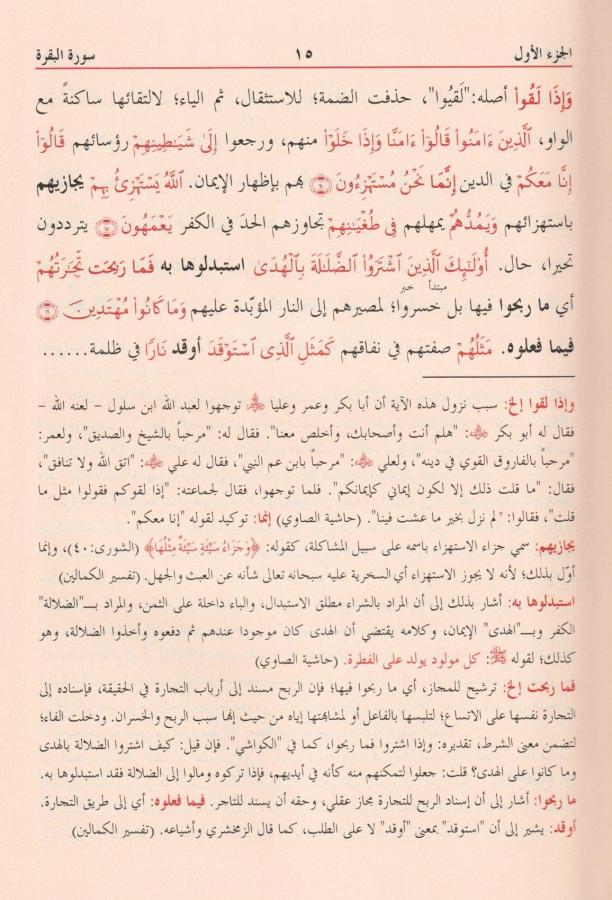 الجزء الأول ١٥ سورة البقرة
وَإِذَا لَقُواْ أصله:"لَقيُوا"، حذفت الضمة؛ للاستثقال، ثم الياء؛ لالتقائها ساكنةً مع
الواو، ٱلَّذِينَ ءَامَنُواْ قَالُوٓاْ ءَامَنَّا وَإِذَا خَلَوْاْ منهم، ورجعوا إِلَىٰ شَيَـٰطِينِهِمْ رؤسائهم قَالُوٓاْ
إِنَّا مَعَكُمْ في الدين إِنَّمَا نَحْنُ مُسْتَهْزِءُونَ ۝١٤ بهم بإظهار الإيمان. ٱللَّهُ يَسْتَهْزِئُ بِهِمْ يجازيهم
باستهزائهم وَيَمُدُّهُمْ يمهلهم فِى طُغْيَـٰنِهِمْ تجاوزهم الحدَ في الكفر يَعْمَهُونَ ۝١٥ يترددون
تحيرا، حال. أُوْلَـٰٓئِكَ ٱلَّذِينَ ٱشْتَرَوُاْ ٱلضَّلَـٰلَةَ بِٱلْهُدَىٰ استبدلوها به فَمَا رَبِحَت تِّجَـٰرَتُهُمْ
مبتدأ خبر
أي ما ربحوا فيها بل خسروا؛ لمصيرهم إلى النار المؤبّدة عليهم وَمَا كَانُواْ مُهْتَدِينَ ۝١٦
فيما فعلوه. مَثَلُهُمْ صفتهم في نفاقهم كَمَثَلِ ٱلَّذِى ٱسْتَوْقَدَ أوقد نَارًا في ظلمة......
وإذا لقوا إلخ: سبب نزول هذه الآية أن أبا بكر وعمر وعليا ﷺ توجهوا لعبد الله ابن سلول - لعنه الله -
فقال له أبو بكر ﷺ: "هلم أنت وأصحابك، وأخلص معنا". فقال له: "مرحباً بالشيخ والصديق"، ولعمر:
"مرحباً بالفاروق القوي في دينه"، ولعلي ﷺ: "مرحباً بابن عم النبي"، فقال له علي ﷺ: "اتق الله ولا تنافق"،
فقال: "ما قلت ذلك إلا لكون إيماني كإيمانكم". فلما توجهوا، فقال لجماعته: "إذا لقوكم فقولوا مثل ما
قلت"، فقالوا: "لم نزل بخير ما عشت فينا". (حاشية الصاوي) إنما: توكيد لقوله "إنا معكم".
يجازيهم: سمي جزاء الاستهزاء باسمه على سبيل المشاكلة، كقوله: ﴿وَجَزَٰٓؤُاْ سَيِّئَةٍ سَيِّئَةٌ مِّثْلُهَا﴾ (الشورى:٤٠)، وإنما
أوّل بذلك؛ لأنه لا يجوز الاستهزاء أي السخرية عليه سبحانه تعالى شأنه عن العبث والجهل. (تفسير الكمالين)
استبدلوها به: أشار بذلك إلى أن المراد بالشراء مطلق الاستبدال، والباء داخلة على الثمن، والمراد بـ"الضلالة"
الكفر وبـ"الهدى" الإيمان، وكلامه يقتضي أن الهدى كان موجودا عندهم ثم دفعوه وأخذوا الضلالة، وهو
كذلك؛ لقوله ﷺ: كل مولود يولد على الفطرة. (حاشية الصاوي)
فما ربحت إلخ: ترشيح للمجاز، أي ما ربحوا فيها؛ فإن الربح مسند إلى أرباب التجارة في الحقيقة، فإسناده إلى
التجارة نفسها على الاتساع؛ لتلبسها بالفاعل أو لمشابهتها إياه من حيث إنها سبب الربح والخسران. ودخلت الفاء؛
لتضمن معنى الشرط، تقديره: وإذا اشتروا فما ربحوا، كما في "الكواشي". فإن قيل: كيف اشتروا الضلالة بالهدى
وما كانوا على الهدى؟ قلت: جعلوا لتمكنهم منه كأنه في أيديهم، فإذا تركوه ومالوا إلى الضلالة فقد استبدلوها به.
ما ربحوا: أشار إلى أن إسناد الربح للتجارة مجاز عقلي، وحقه أن يسند للتاجر. فيما فعلوه: أي إلى طريق التجارة.
أوقد: يشير إلى أن "استوقد" بمعنى "أوقد" لا على الطلب، كما قال الزمخشري وأشياعه. (تفسير الكمالين)